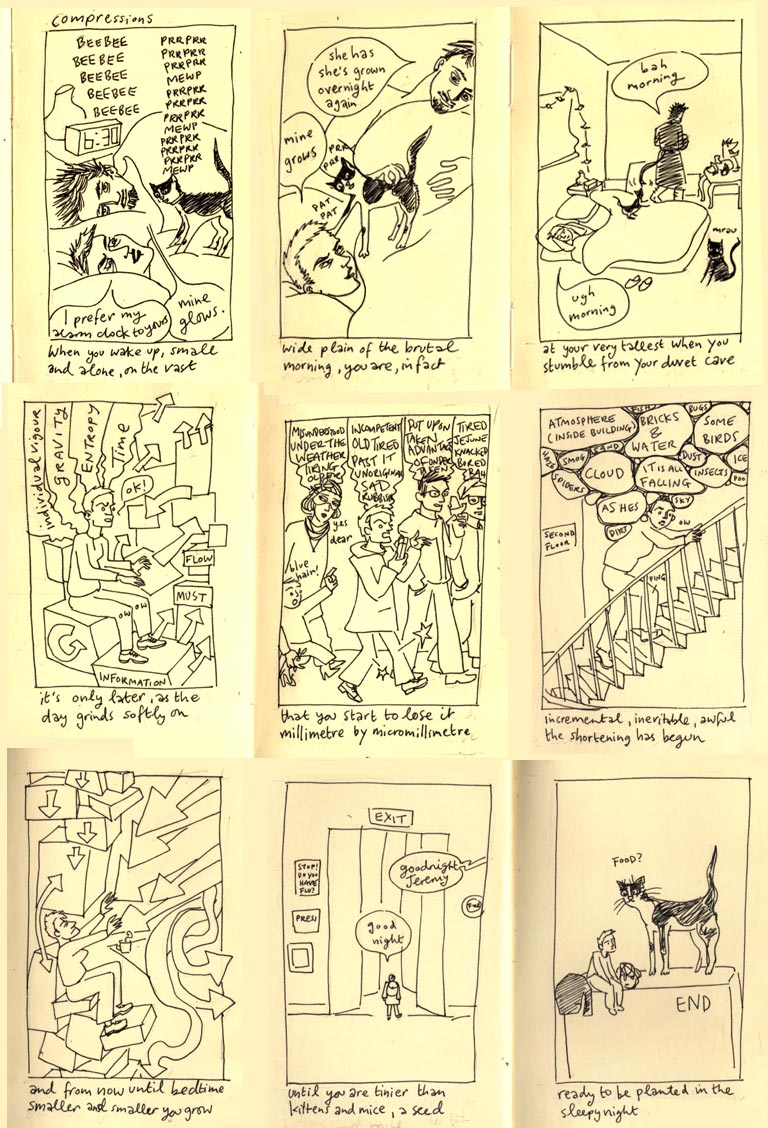 compressions
BEEBEE
BEEBEE
BEEBEE
BEEBEE
BEEBEE
PRRPRR
PRRPRR
PRRPRR
MEWP
PRRPRR
PRRPRR
PRRPRR
MEWP
PRRPRR
PRRPRR
PRRPRR
MEWP
6:30
I prefer my
alarm clock to yours
mine
glows.
when you wake up, small
and alone, on the vast
she has
she's grown
overnight
again
mine
grows
PRR
PRR
PAT
PAT
wide plain of the brutal
morning, you are, in fact
bah
morning
mrau
ugh
morning
at your very tallest when you
stumble from your duvet cave
individual vigour
GRAVITY
ENTROPY
Time
OK!
FLOW
MUST
OW OW
INFORMATION
it's only later, as the
day grinds softly on
MISUNDERSTOOD
UNDER THE
WEATHER
TIRING
OLDER
INCOMPETENT
OLD TIRED
PAST IT
UNORIGINAL
SAD
RUBBISH
PUT UPON
TAKEN
ADVANTAGE
OF UNDER
TIRED
JEJUNE
KNACKED
BORED
BAH
yes
dear
blue
hair!
that you start to lose it
millimetre by micromillimetre
ATMOSPHERE
(INSIDE BUILDING)
FISH
BRICKS
&
WATER
BUGS
SOME
BIRDS
SMOG
SAND
SPIDERS
CLOUD
IT IS ALL
FALLING
DUST
INSECTS
ICE
POO
ASHES
SKY
DIRT
OW
SECOND
FLOOR
PING
incremental, inevitable, awful
the shortening has begun
and from now until bedtime
smaller and smaller you grow
EXIT
STOP!
DO YOU
HAVE
FLU?
PRESS
goodnight
Jeremy
good
night
until you are tinier than
kittens and mice, a seed
FOOD?
END
ready to be planted in the
sleepy night